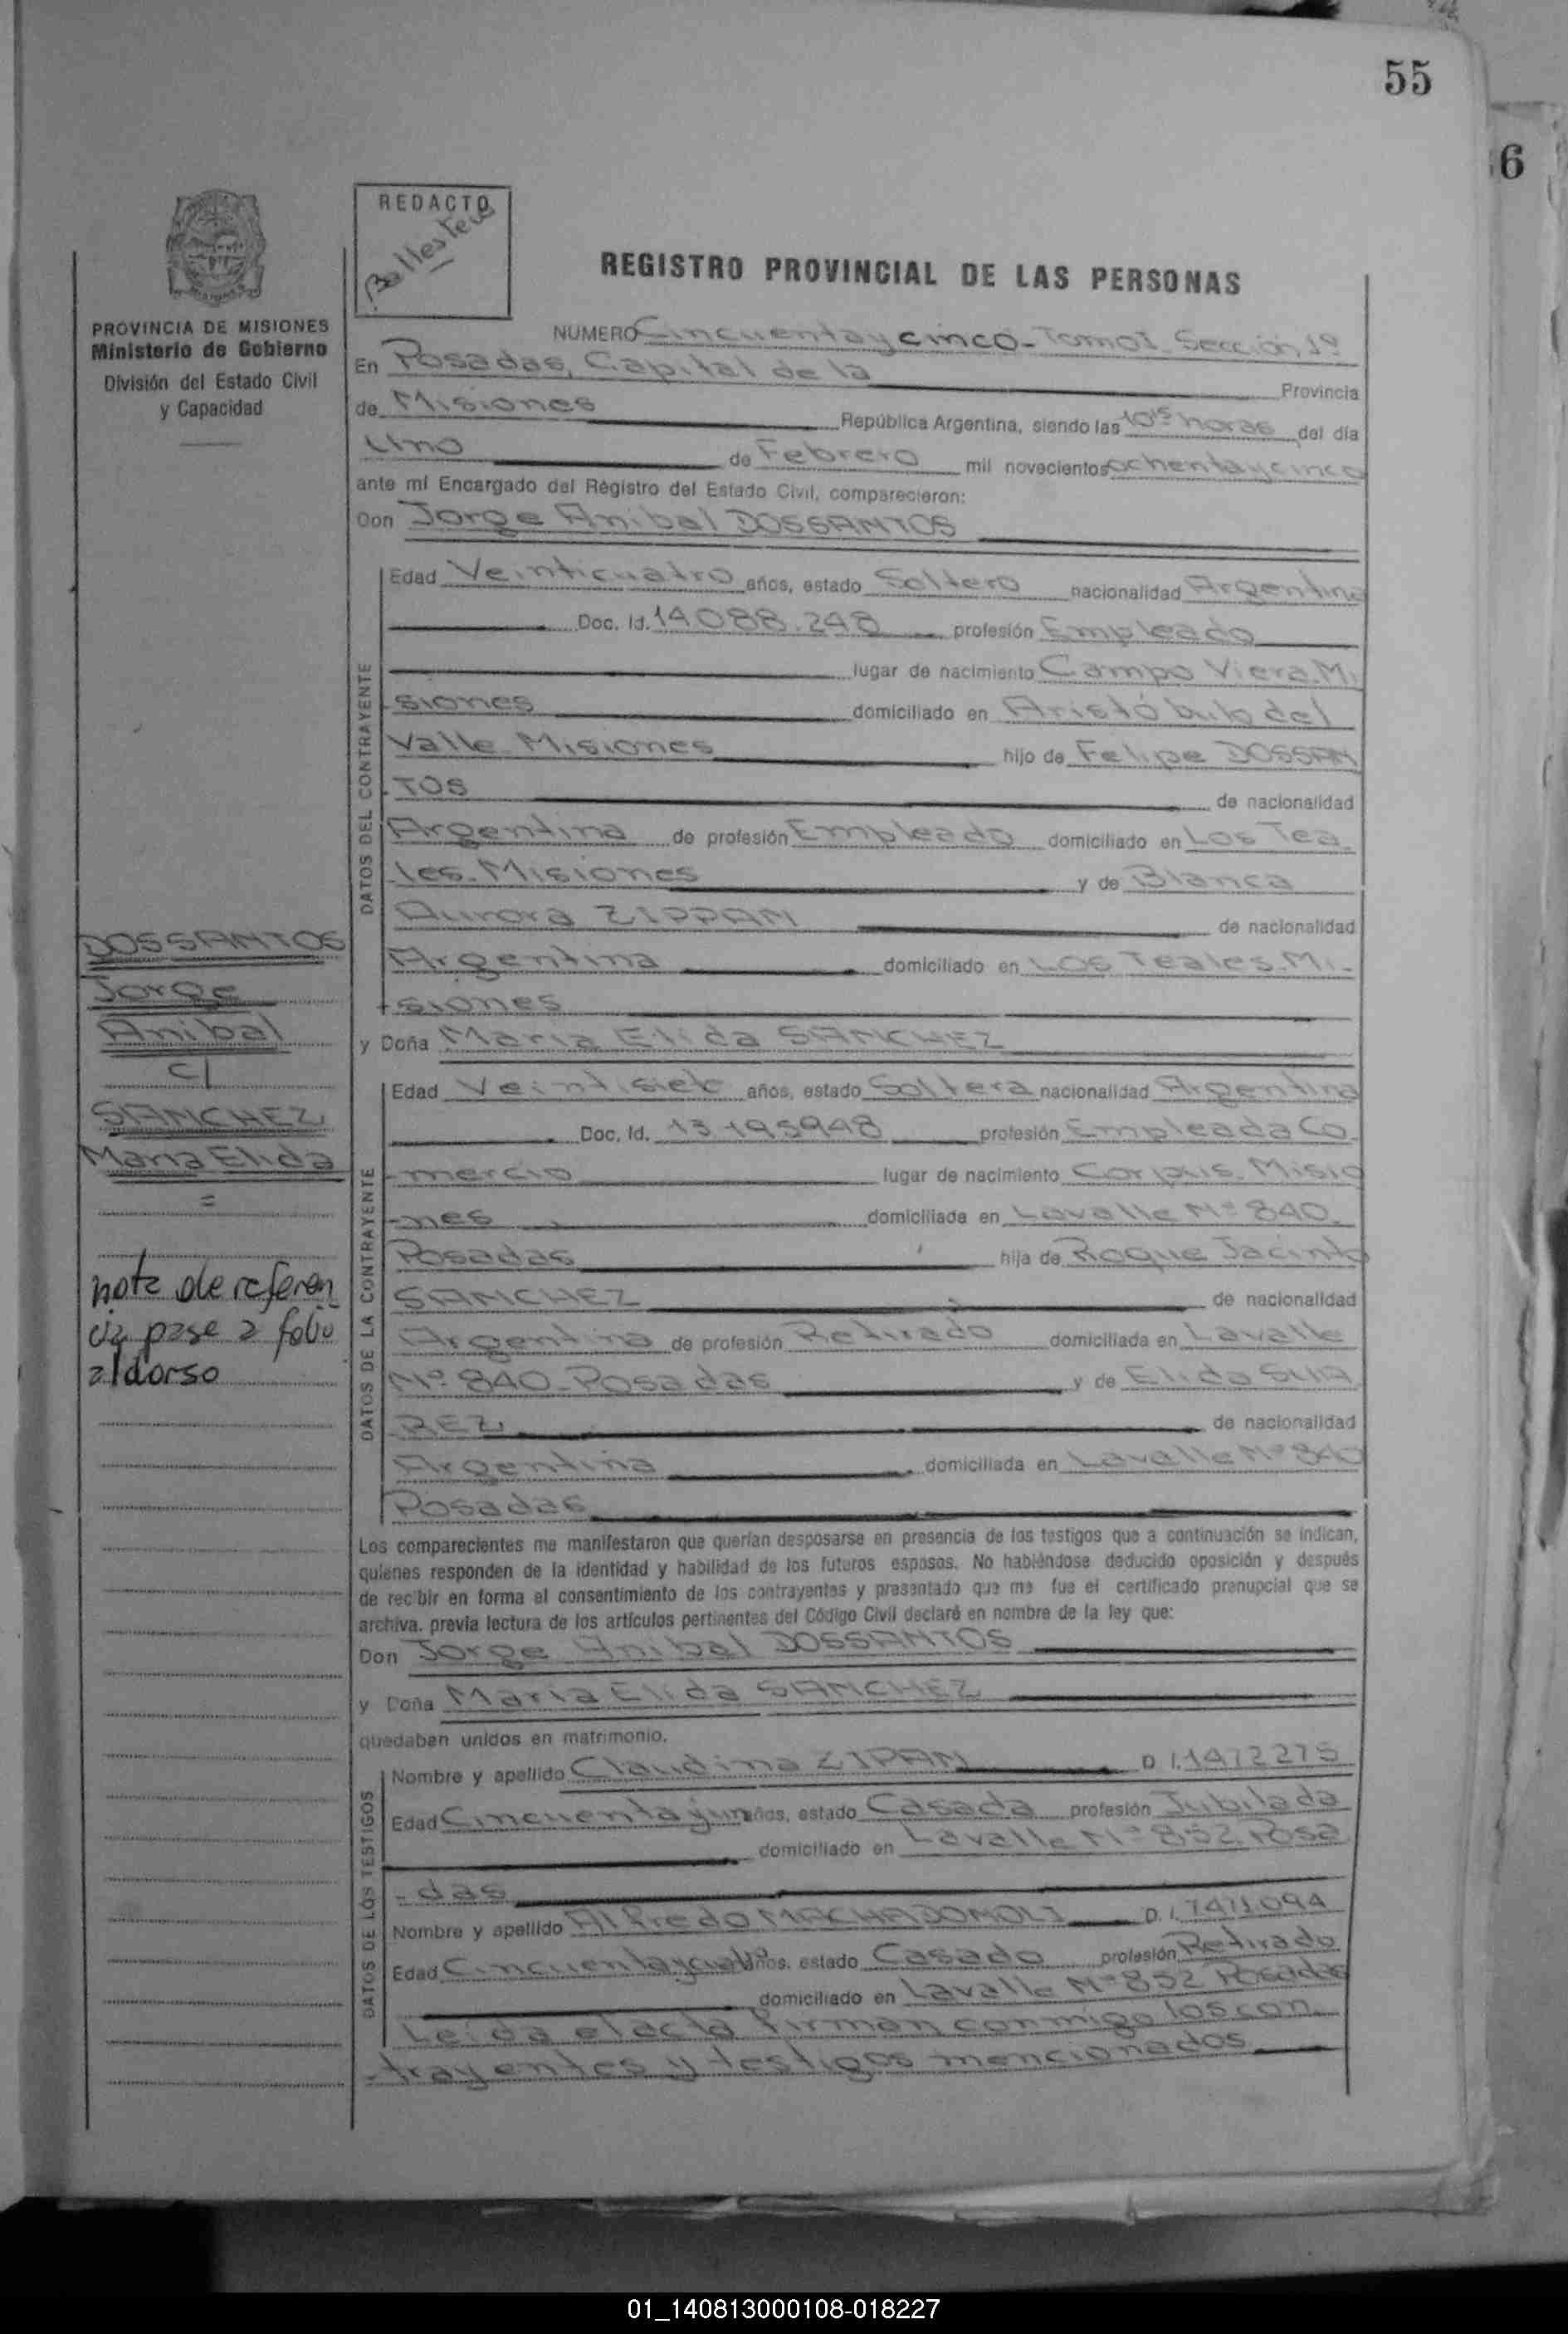 55
6
REDACTO
Ballestero
PROVINCIA DE MISIONES
Ministerio de Gobierno
División del Estado Civil
y Capacidad
REGISTRO PROVINCIAL DE LAS PERSONAS
NUMERO Cincuenta y cinco - Tomo I - Sección 1º
En Posadas, Capital de la Provincia
de Misiones República Argentina, siendo las 10 15 horas del día
Uno de Febrero mil novecientos ochenta y cinco
ante mí Encargado del Registro del Estado Civil, comparecieron:
Don Jorge Anibal DOSSANTOS
DATOS DEL CONTRAYENTE
Edad Veinticuatro años, estado Soltero nacionalidad Argentina
Doc. Id. 14.088.248 profesión Empleado
lugar de nacimiento Campo Viera. Mi
siones domiciliado en Aristóbulo del
Valle - Misiones hijo de Felipe DOSSAN
TOS de nacionalidad
Argentina de profesión Empleado domiciliado en Los Tea
les - Misiones y de Blanca
Aurora ZIPPAN de nacionalidad
Argentina domiciliado en Los Teales. Mi-
siones
y Doña Maria Elida SANCHEZ
DATOS DE LA CONTRAYENTE
Edad Veintisiete años, estado Soltera nacionalidad Argentina
Doc. Id. 13.195948 profesión Empleada Co
mercio lugar de nacimiento Corpus - Misio
nes domiciliada en Lavalle Nº 840.
Posadas hija de Roque Jacinto
SANCHEZ de nacionalidad
Argentina de profesión Retirado domiciliada en Lavalle
Nº 840 - Posadas y de Elida SUA
REZ de nacionalidad
Argentina domiciliada en Lavalle Nº 840
Posadas
Los comparecientes me manifestaron que querían desposarse en presencia de los testigos que a continuación se indican,
quienes responden de la identidad y habilidad de los futuros esposos. No habiéndose deducido oposición y después
de recibir en forma el consentimiento de los contrayentes y presentado que me fue el certificado prenupcial que se
archiva, previa lectura de los artículos pertinentes del Código Civil declaré en nombre de la ley que:
Don Jorge Anibal DOSSANTOS
y Doña Maria Elida SANCHEZ
quedaban unidos en matrimonio.
DATOS DE LOS TESTIGOS
Nombre y apellido Claudina ZIPAN D.I. 1472275
Edad Cincuenta y un años, estado Casada profesión Jubilada
domiciliado en Lavalle Nº 852. Posa
-das
Nombre y apellido Alfredo MACHADO D.I. 7471.094
Edad Cincuenta y años, estado Casado profesión Retirado
domiciliado en Lavalle Nº 852 Posadas
Leida el acta firman conmigo los con
trayentes y testigos mencionados
DOSSANTOS
Jorge
Anibal
c/
SANCHEZ
Maria Elida
=
nota de referen
cia pase a folio
al dorso
01_140813000108-018227